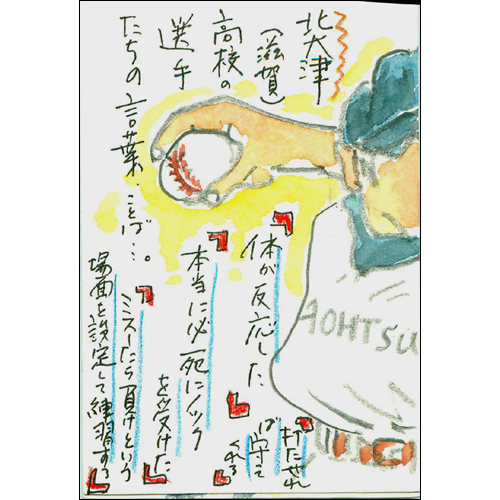 北大津
(滋賀)
高校の
選手
たちの言葉、ことば…。
体が反応した
打たせれ
ば守って
くれる
本当に必死にノック
を受けた
ミスしたら負けという
場面を設定して練習する
AOHTSU